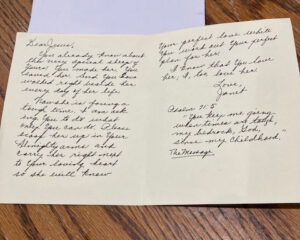 Dear Jesus,
You already know about
this very special sheep of
Yours. You made her. You
saved her. And You have
walked right beside her
every day of her life.
is facing a
tough time. I am ask
ing You to do what
only You can do. Please
scoop her up in Your
Almighty arms and
carry her right next
to Your loving heart
so she will know
Your perfect love while
You work out Your perfect
plan for her.
I know that You love
her, I, too love her.
Love,
Janet
Psalm 71:5
"You keep me going
when times are tough,
my bedrock, God,
since my childhood."
The Message